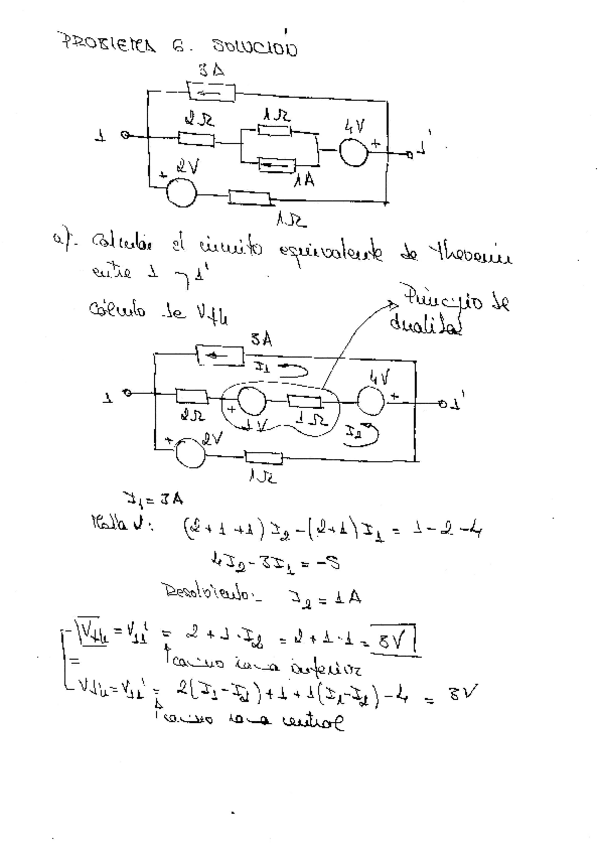 PROBLEMA 6. SOLUCIÓN
3A
2Ω 1Ω 4V
1 + 1'
1A
+ 2V
1Ω
a).- Calcular el circuito equivalente de Thevenin
entre 1 y 1'
Cálculo de Vth
Principio de
dualidad
3A
I1
4V
1 + 1'
2Ω + 1V 1Ω I2
+ 2V
1Ω
I1 = 3A
Malla : (2+1+1) I2 - (2+1) I1 = 1-2-4
4I2 - 3I1 = -5
Resolviendo:- I2 = 1A
Vth = V11' = 2 + 1·I2 = 2+1·1 = 3V
camino rama inferior
=
Vth = V11' = 2(I1-I2)+1+1(I1-I2)-4 = 3V
camino rama central